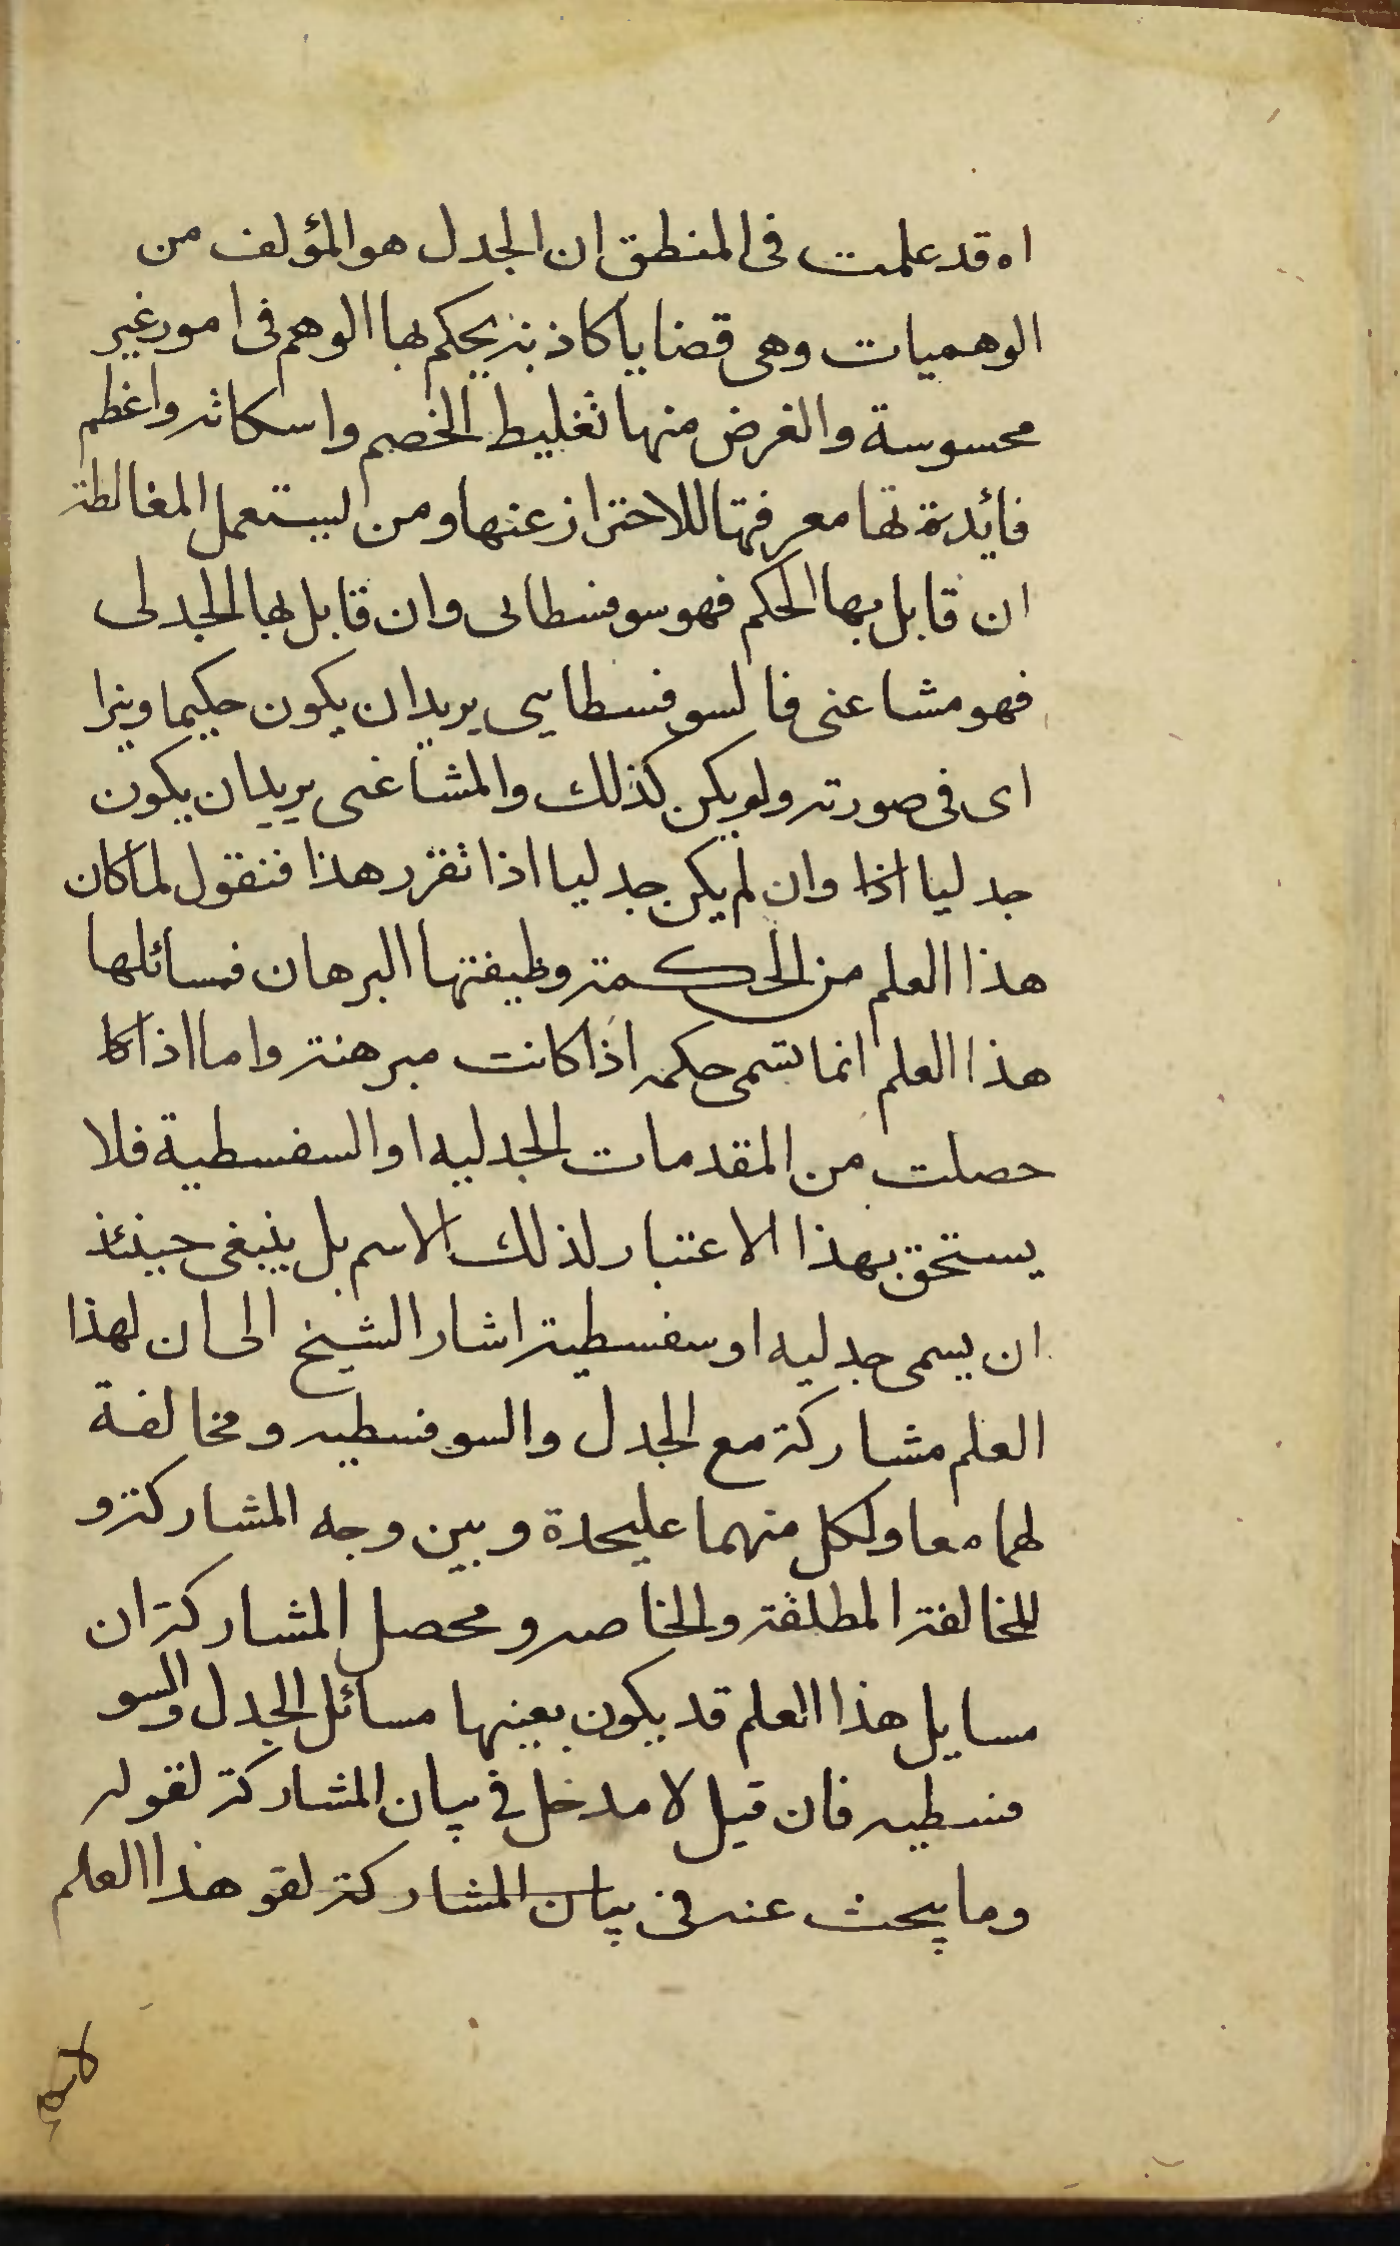 اه قد علمت فى المنطق ان الجدل هو المؤلف من
الوهميات وهى قضايا كاذبة يحكم بها الوهم فى امور غير
محسوسة والغرض منها تغليط الخصم واسكاته واعظم
فائدة تها معرفتها للاحتراز عنها ومن ليستعمل المغالطة
ان قابل بها الحكم فهو سوفسطائى وان قابل بها الجدلى
فهو مشاعنى فالسوفسطايى يريد ان يكون حكيما ويترا
اى فى صورته ولو يكن كذلك والمشاغى يريد ان يكون
جدليا اذا وان لم يكن جدليا اذا تقرر هذا فنقول لما كان
هذا العلم من الحكمة وظيفتها البرهان فمسائلها
هذا العلم انما تسمى حكمه اذا كانت مبرهنة واما اذا كا
حصلت من المقدمات الجدليه او السفسطية فلا
يستحق بهذا الاعتبار لذلك الاسم بل ينبغى حينئذ
ان يسمى جدليه او سفسطية اشار الشيخ الى ان لهذا
العلم مشاركة مع الجدل والسوفسطيه ومخالفة
لهما معا ولكل منهما عليحدة وبين وجه المشاركة و
المخالفة المطلقة والخاصه ومحصل المشاركة ان
مسايل هذا العلم قد يكون بعينها مسائل الجدل والسو
فسطيه فان قيل لا مدخل فى بيان المشاركة لقوله
وما يبحث عنه فى بيان المشاركة لقو هذا العلم